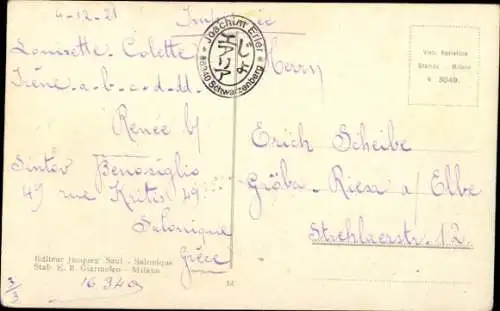 4-12-21 Imprimée
Louisette - Colette -
Irène - a - b - c - d - d
Renée b/
Sintov Benosiglio
49 rue Kritis 49
Salonique
Grèce
Joachim Erler
HAUS
08340 Schwarzenberg
Herrn
Erich Scheibe
Gröba - Riesa a/ Elbe
Strehlaerstr. 12
Stab. - Milano
Editeur Jacques Saul - Salonique
Stab. E. B. - Milano
3/3